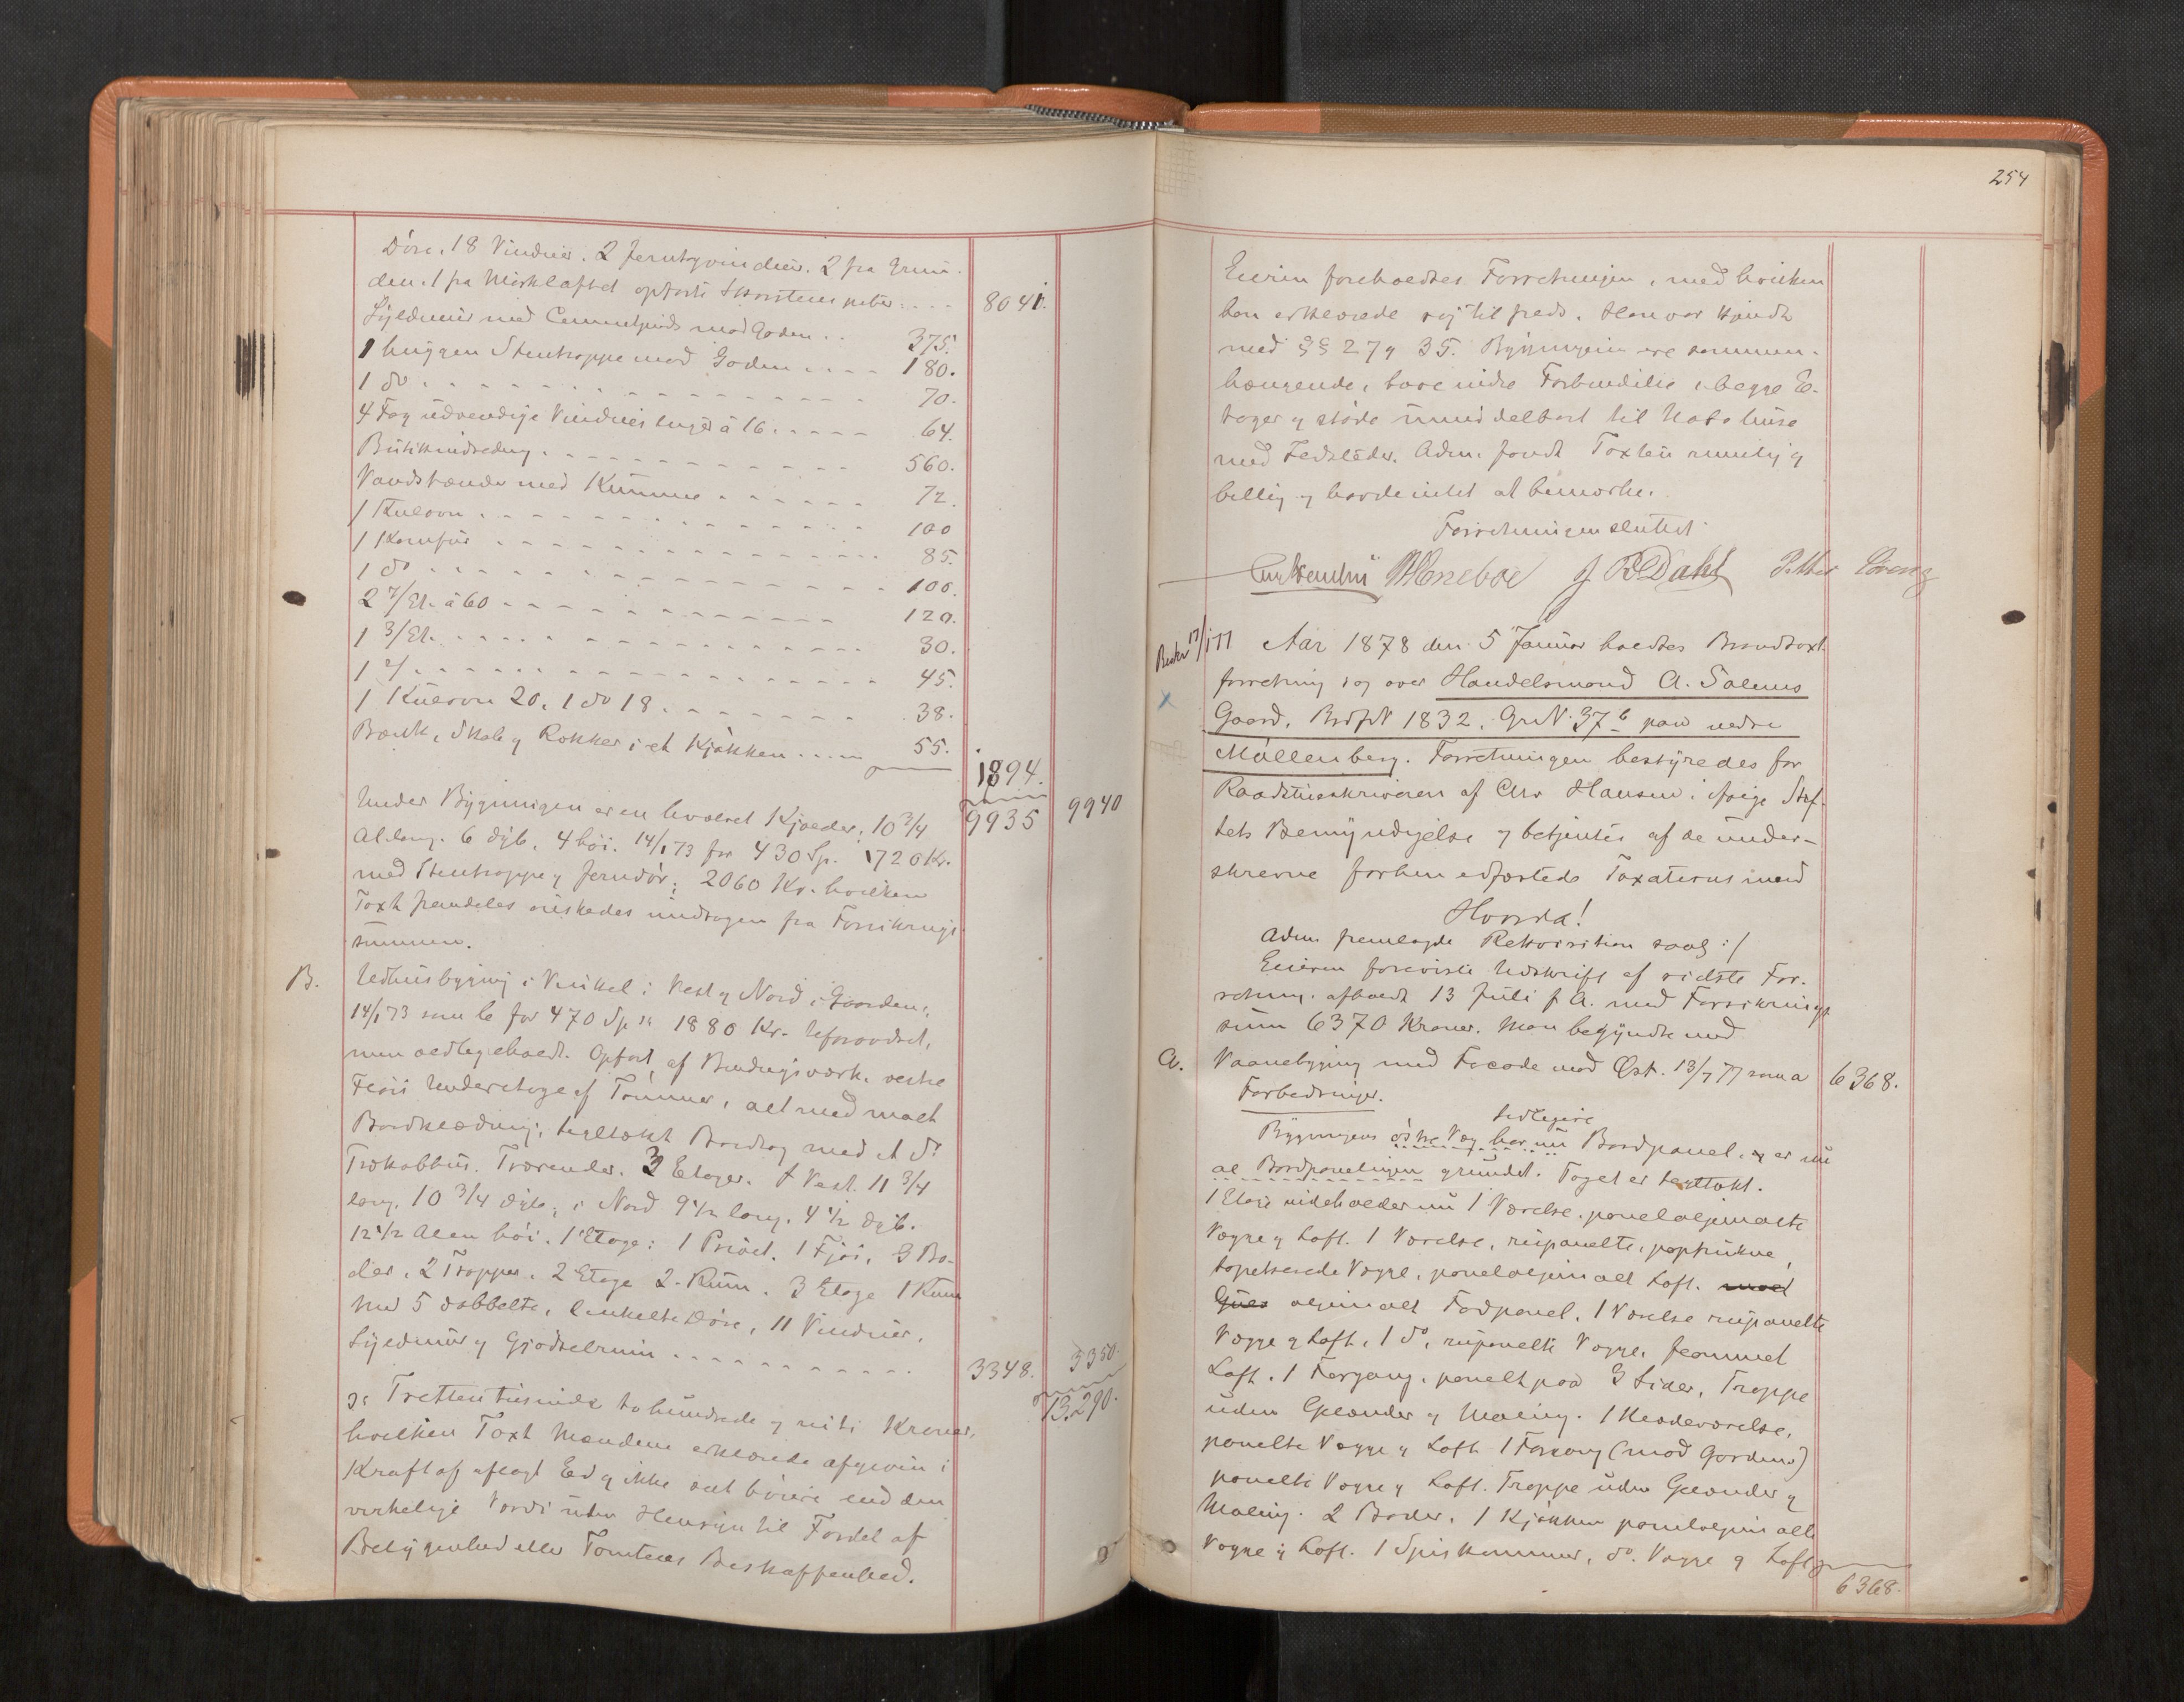 Döre. 18 Vinduer. 2 Jerntagvinduer. 2 fra Grun-
den. 1 fra Mörkloftet opförte Skorstenspiber. . . . 8041.
Skyldmur med Cementpuds mod Gaden . . 375.
1 huggen Stentrappe mod Gaden . . . . 180.
1 do . . . . . . . . . . . . 70.
4 Fag udvendige Vinduesluger à 16 . . . . . 64.
Butikindredning . . . . . . . . . . . 560.
Vandstænder med Kumme . . . . . . 72.
1 Kulovn . . . . . . . . . . . . . 100
1 Komfur . . . . . . . . . . . . . 85.
1 do . . . . . . . . . . . . . . 100.
2 2/Et. à 60 . . . . . . . . . . . 120.
1 3/Et. . . . . . . . . . . . . . 30.
1 2/ . . . . . . . . . . . . . . 45.
1 Kulovn 20. 1 do 18 . . . . . . . . 38.
Bænk, Skab og Rækker i et Kjökken . . . . . 55.
1894.
Under Bygningen er en hvælvet Kjælder, 10 3/4 9935 9940
Al. lang. 6 dyb. 4 höi. 14/1 73 for 430 Sp. 1720 Kr.
med Stentrappe og Jerndör; 2060 Kr. hvilken
Taxt fremdeles önskedes undtagen fra Forsikrings
summen.
B. Udhusbygning i Vinkel i Vest og Nord i Gaarden,
14/1 73 som b for 470 Sp. = 1880 Kr. Uforandret,
men vedligeholdt. Opfört af Bindingsværk. vestre
Flöis Underetage af Tömmer, alt med malt
Bordklædning, tegltækt Bordtag med et do
Trekobbhus. Trærender. 3 Etager. I Vest. 11 3/4
lang. 10 3/4 dyb, i Nord 9 1/2 lang. 4 1/2 dyb.
12 1/2 Alen höi. 1 Etage: 1 Privet. 1 Fjös, 3 Bo-
der. 2 Trapper. 2 Etage 2 Rum. 3 Etage 1 Rum
med 5 dobbelte, enkelte Döre, 11 Vinduer.
Skyldmur og Gjödselrum . . . . . . . . . . 3348. 3350.
= Tretten tusinde to hundrede og niti Kroner, 13.290.
hvilken Taxt Mændene erklærede afgiven i
Kraft af aflagt Ed og ikke sat höiere end den
virkelige Værdi uden Hensyn til Fordel af
Beliggenhed eller Tomtens Beskaffenhed.
254
Eieren foreholdtes Forretningen, med hvilken
han erklærede sig tilfreds. Han var kjendt
med §§ 27 og 35. Bygningerne ere sammen-
hængende, have indre Forbindelse i begge E-
tager og stöde umiddelbart til Nabohuse
med Ildsteder. Adm. fandt Taxten rimelig og
billig og havde intet at bemærke.
Forretningen sluttet
J. B. Dahl Petter Lorenz
Aar 1878 den 5 Januar holdtes Brandtaxt
forretning i og over Handelsmand A. Salems
Gaard, BrdfN 1832. GrN 37b paa nedre
Möllenberg. Forretningen bestyredes for
Raadstueskriveren af Chr Hansen i fölge Stif-
tets Bemyndigelse og betjentes af de under-
skrevne forhen edfæstede Taxationsmænd
Hvorda!
Adm. fremlagde Rekvisition saal: /
Eieren foreviste Udskrift af sidste For-
retning. afholdt 13 Juli f. A. med Forsikrings
sum 6370 Kroner. Man begyndte med
A. Vaanebygning med Facade mod Öst. 13/7 77 som a 6368.
Forbedringer.
tidligere
Bygningens östre Væg har nu Bordpanel, og er nu
al Bordpanelingen grundet. Taget er tegltækt.
1 Etage indeholder nu 1 Værelse. paneloljemalte
Vægge og Loft. 1 Værelse, rupanelte, papstrukne,
tapetserede Vægge, paneloljemalt Loft.
oljemalt Fodpanel. 1 Værelse rupanelte
Vægge og Loft. 1 do, rupanelte Vægge, flammet
Loft. 1 Forgang. panelt paa 3 Sider, Trappe
uden Gelænder og Maling. 1 Klædeværelse.
panelte Vægge og Loft. 1 Forgang (mod Gaarden)
panelte Vægge og Loft. Trappe uden Gelænder og
Maling. 2 Boder. 1 Kjökken paneloljemalte
Vægge og Loft. 1 Spiskammer, do. Vægge og Loft
6368.